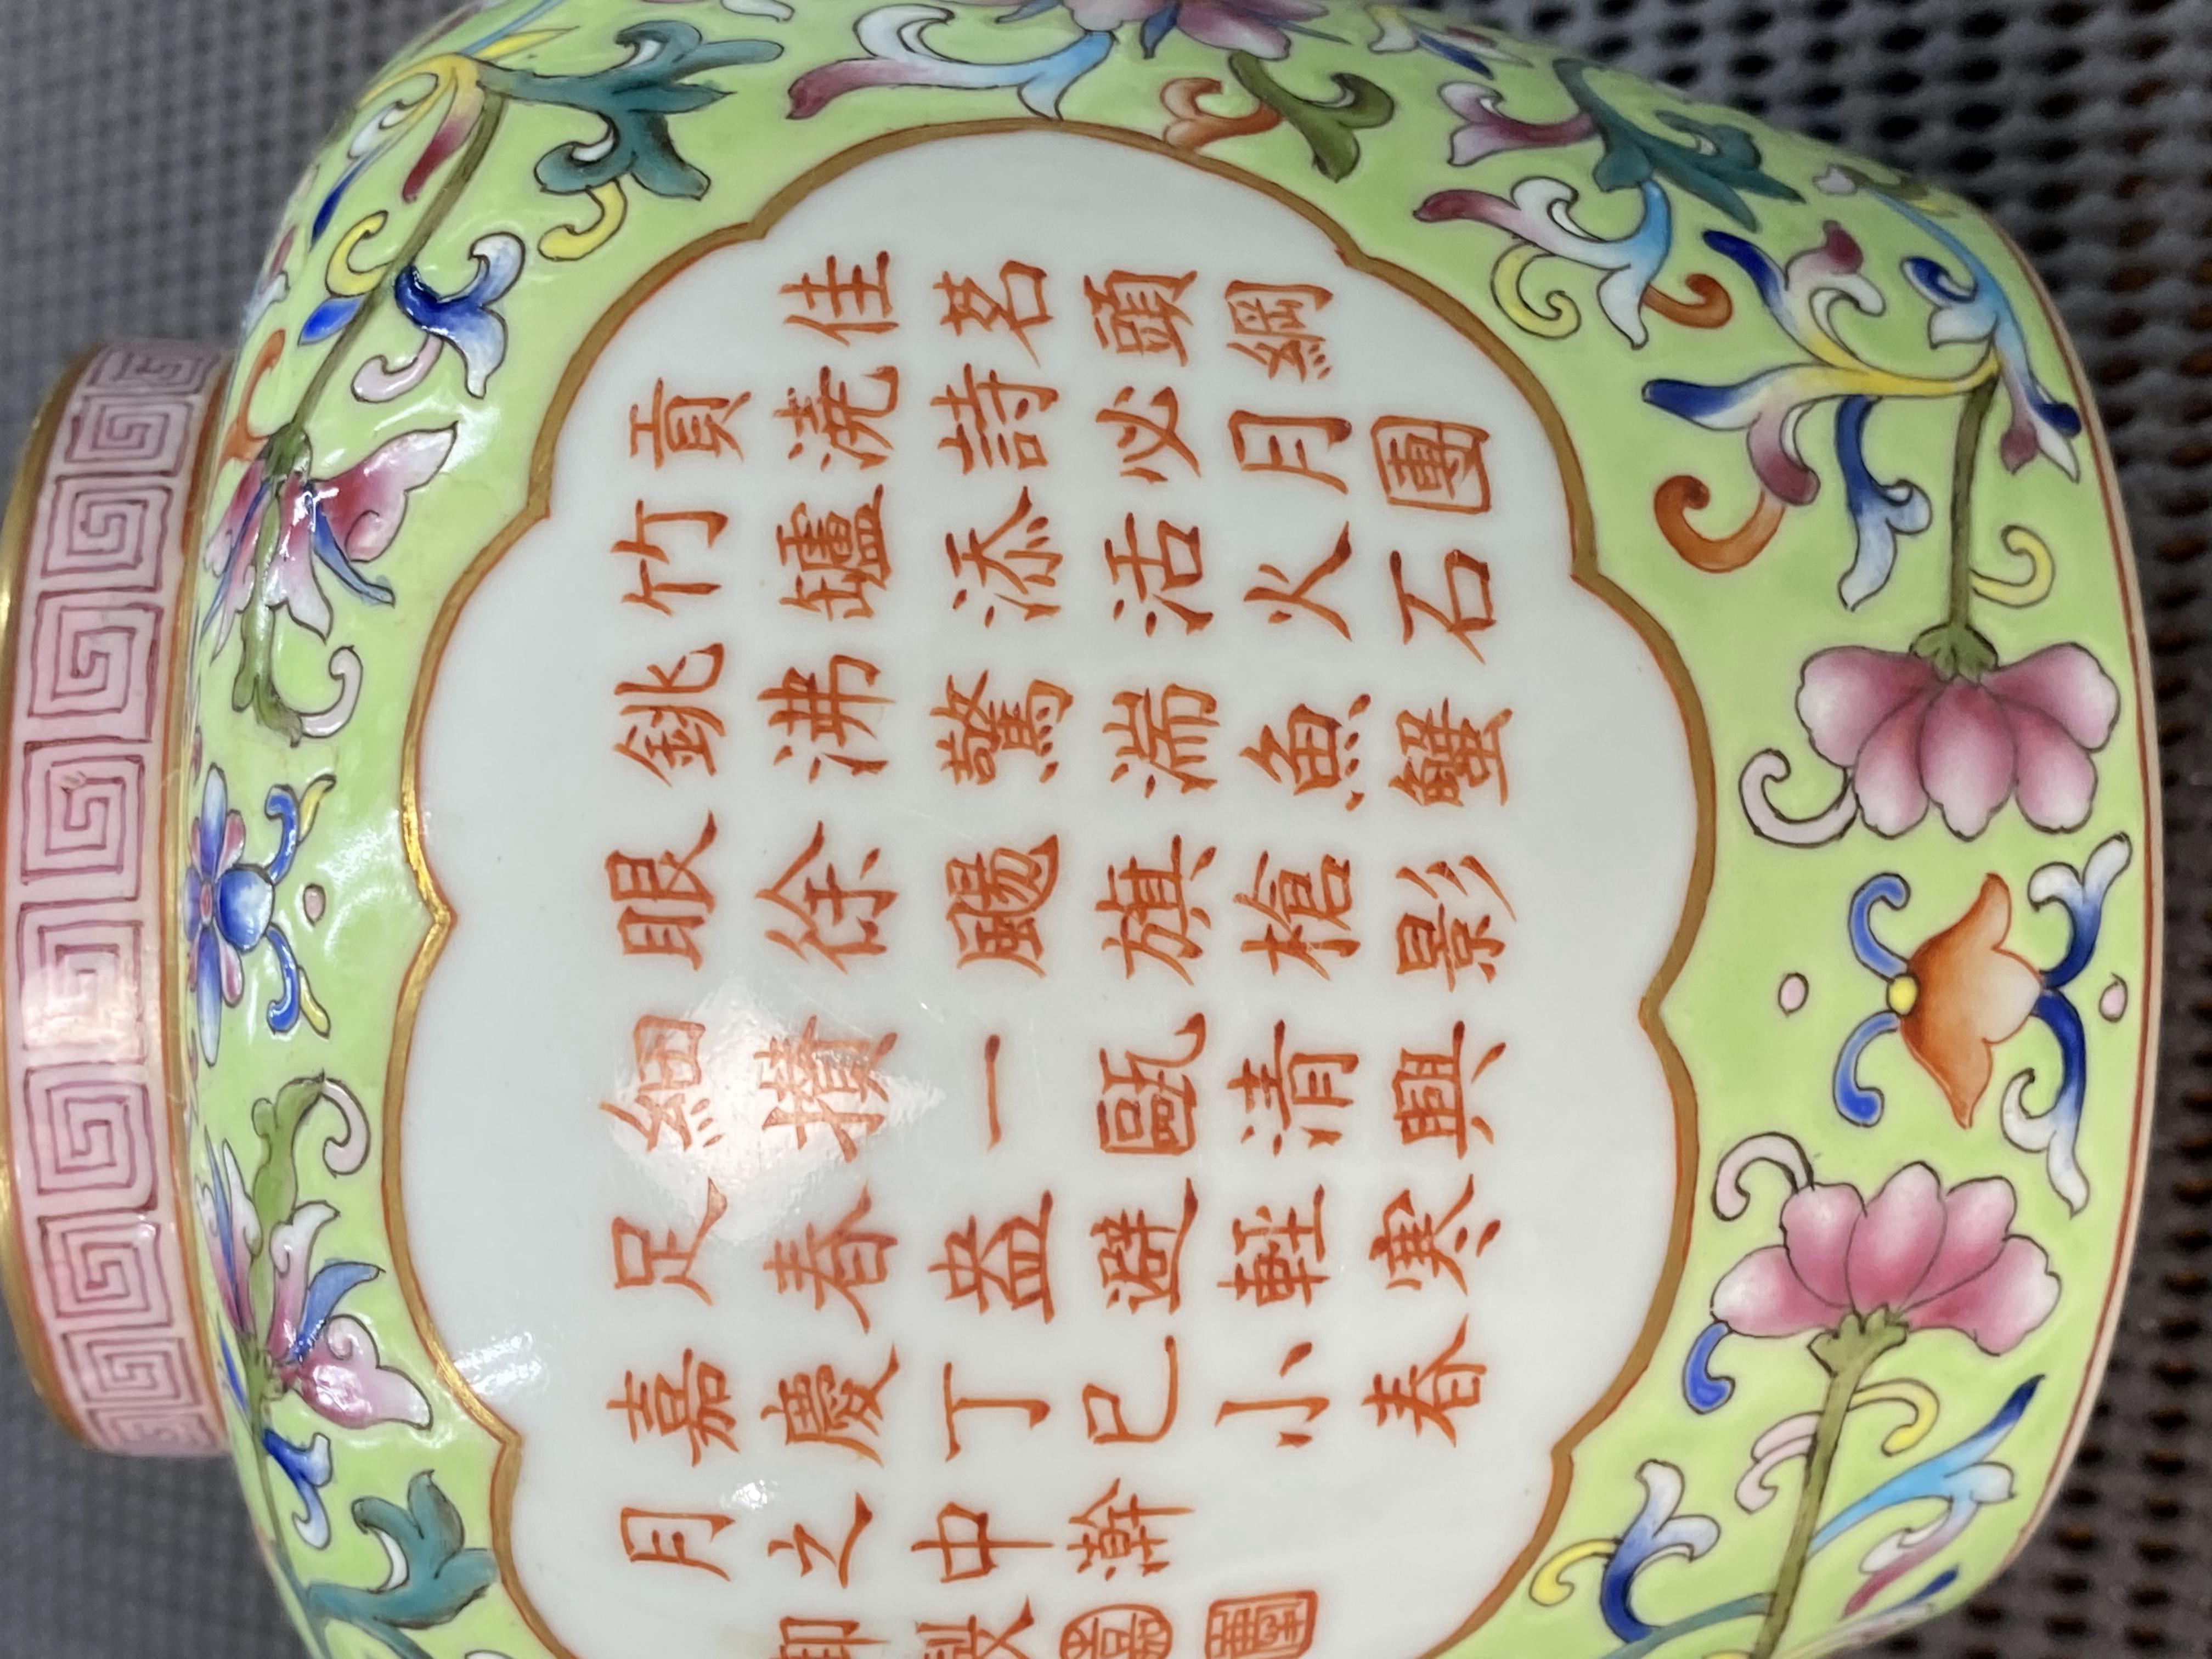 佳茗頭綱
貢澆詩必月團
竹鑪添活火石
銚沸驚湍魚蟹
眼徐颺旗槍影
細攢一甌清興
足春盎避輕寒
嘉慶丁巳小春
月之中澣
御製